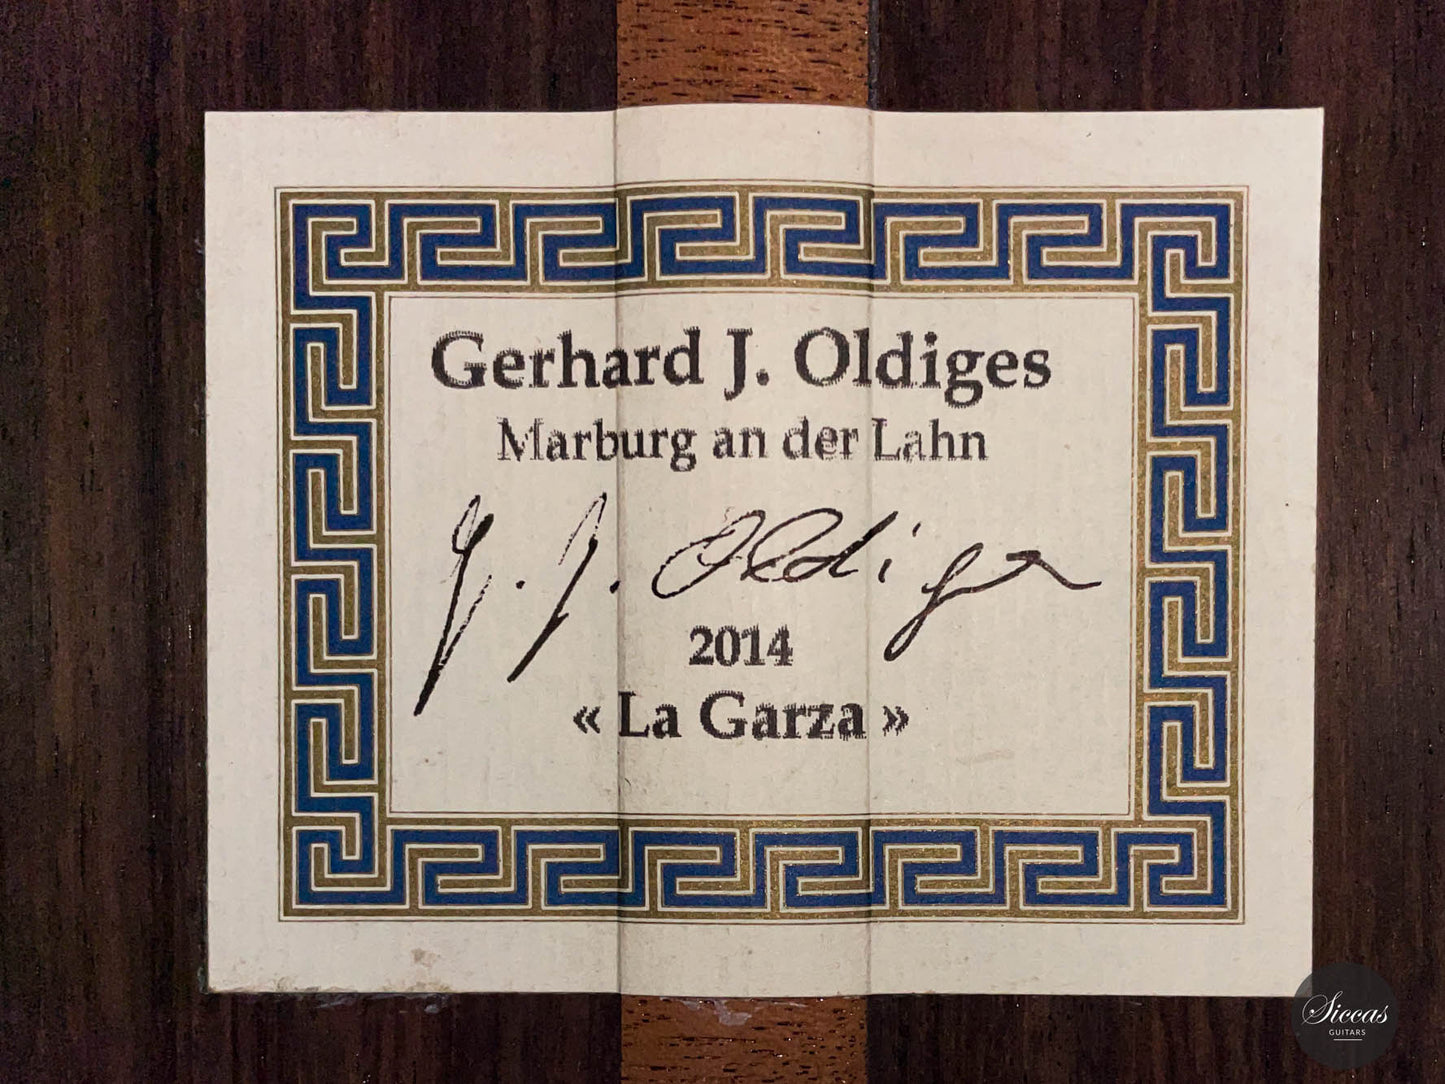 Gerhard J. Oldiges
Marburg an der Lahn
G. J. Oldiges
2014
« La Garza »
Siccas
GUITARS